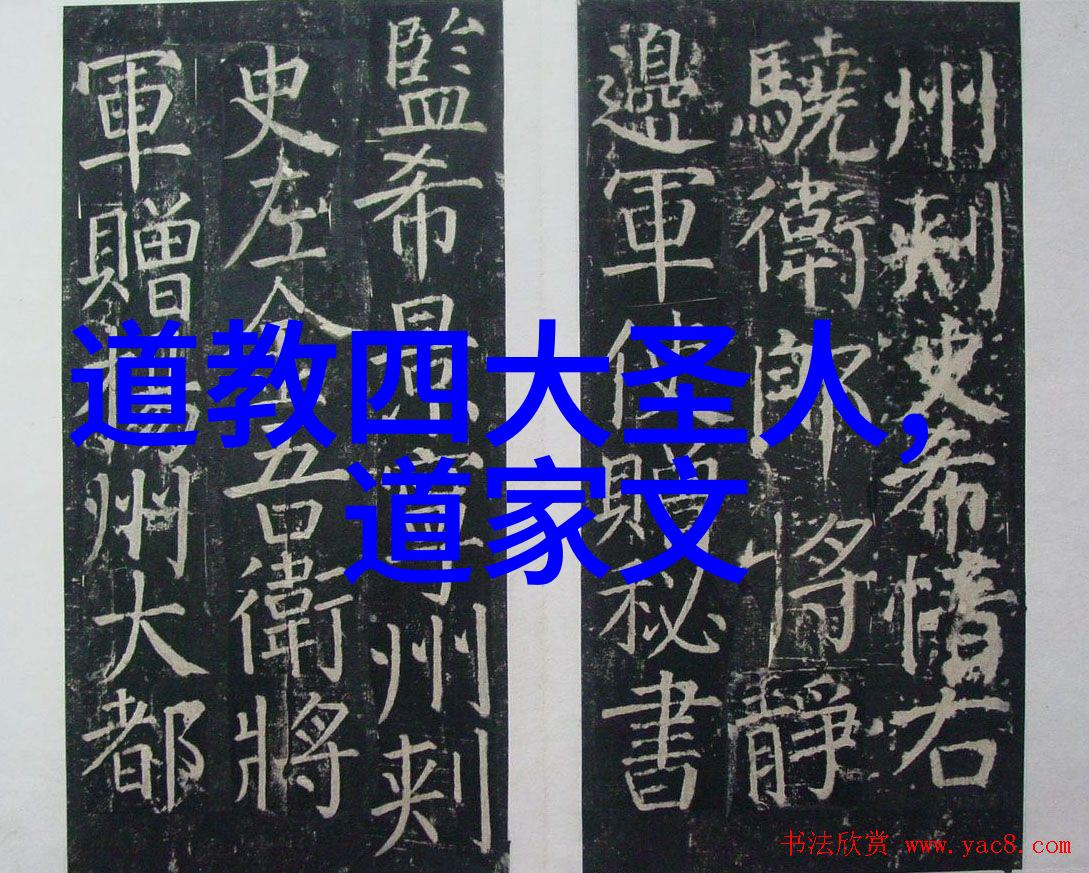 道教四大圣人,
道家文
州刺史希右
驍衛郎將靜
邊軍使贈秘書
監希州刺
史左金吾衛將
軍贈揚州大都
书法欣赏 www.yac8.com